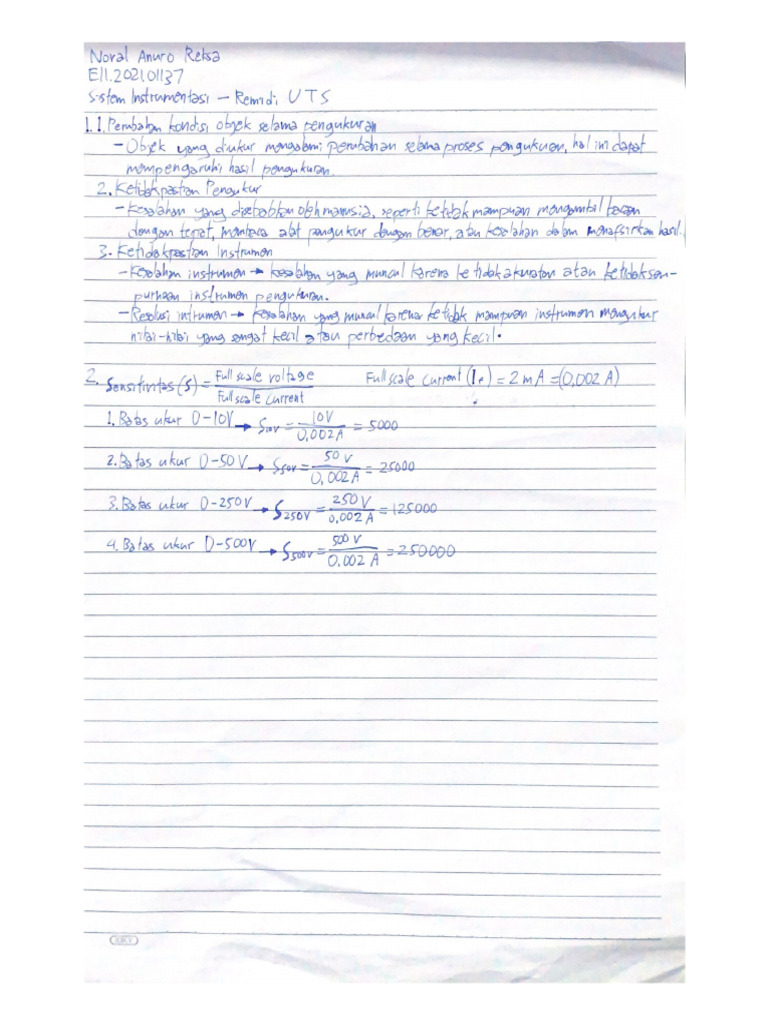 Noval Anuro Reksa
E11.2021.01137
Sistem Instrumentasi – Remidi UTS
1. 1. Perubahan kondisi objek selama pengukuran
– Objek yang diukur mengalami perubahan selama proses pengukuran, hal ini dapat
mempengaruhi hasil pengukuran.
2. Ketidakpastian Pengukur
– Kesalahan yang disebabkan oleh manusia, seperti ketidakmampuan mengambil bacaan
dengan tepat, membaca alat pengukur dengan benar, atau kesalahan dalam menafsirkan hasil.
3. Ketidakpastian Instrumen
– Kesalahan instrumen → kesalahan yang muncul karena ketidakakuratan atau ketidaksem-
purnaan instrumen pengukuran.
– Resolusi intrumen → kesalahan yang muncul karena ketidak mampuan instrumen mengukur
nilai-nilai yang sangat kecil atau perbedaan yang kecil.
2. Sensitivitas (S) = Full scale voltage / Full scale current Full scale current (I_f) = 2 mA = (0,002 A)
1. Batas ukur 0-10V → S10V = 10V / 0,002 A = 5000
2. Batas ukur 0-50V → S50V = 50 V / 0,002 A = 25000
3. Batas ukur 0-250V → S250V = 250 V / 0,002 A = 125000
4. Batas ukur 0-500V → S500V = 500 V / 0.002 A = 250000